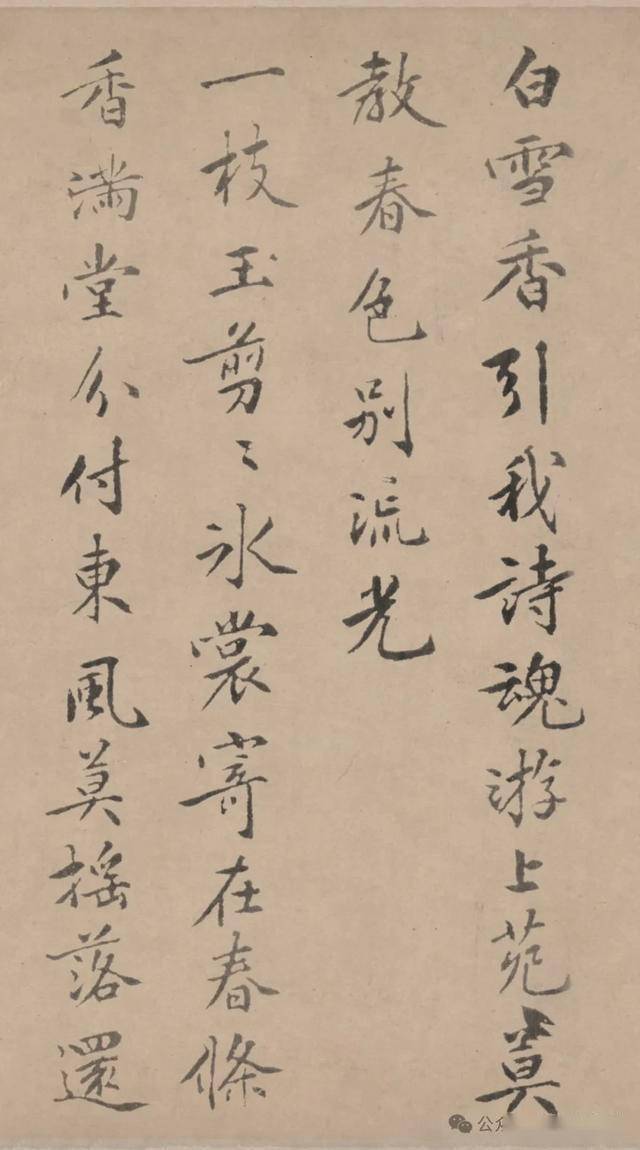 白雪香引我詩魂游上苑莫
教春色別流光
一枝玉剪〻冰裳寄在春條
香滿堂分付東風莫摇落還
公众